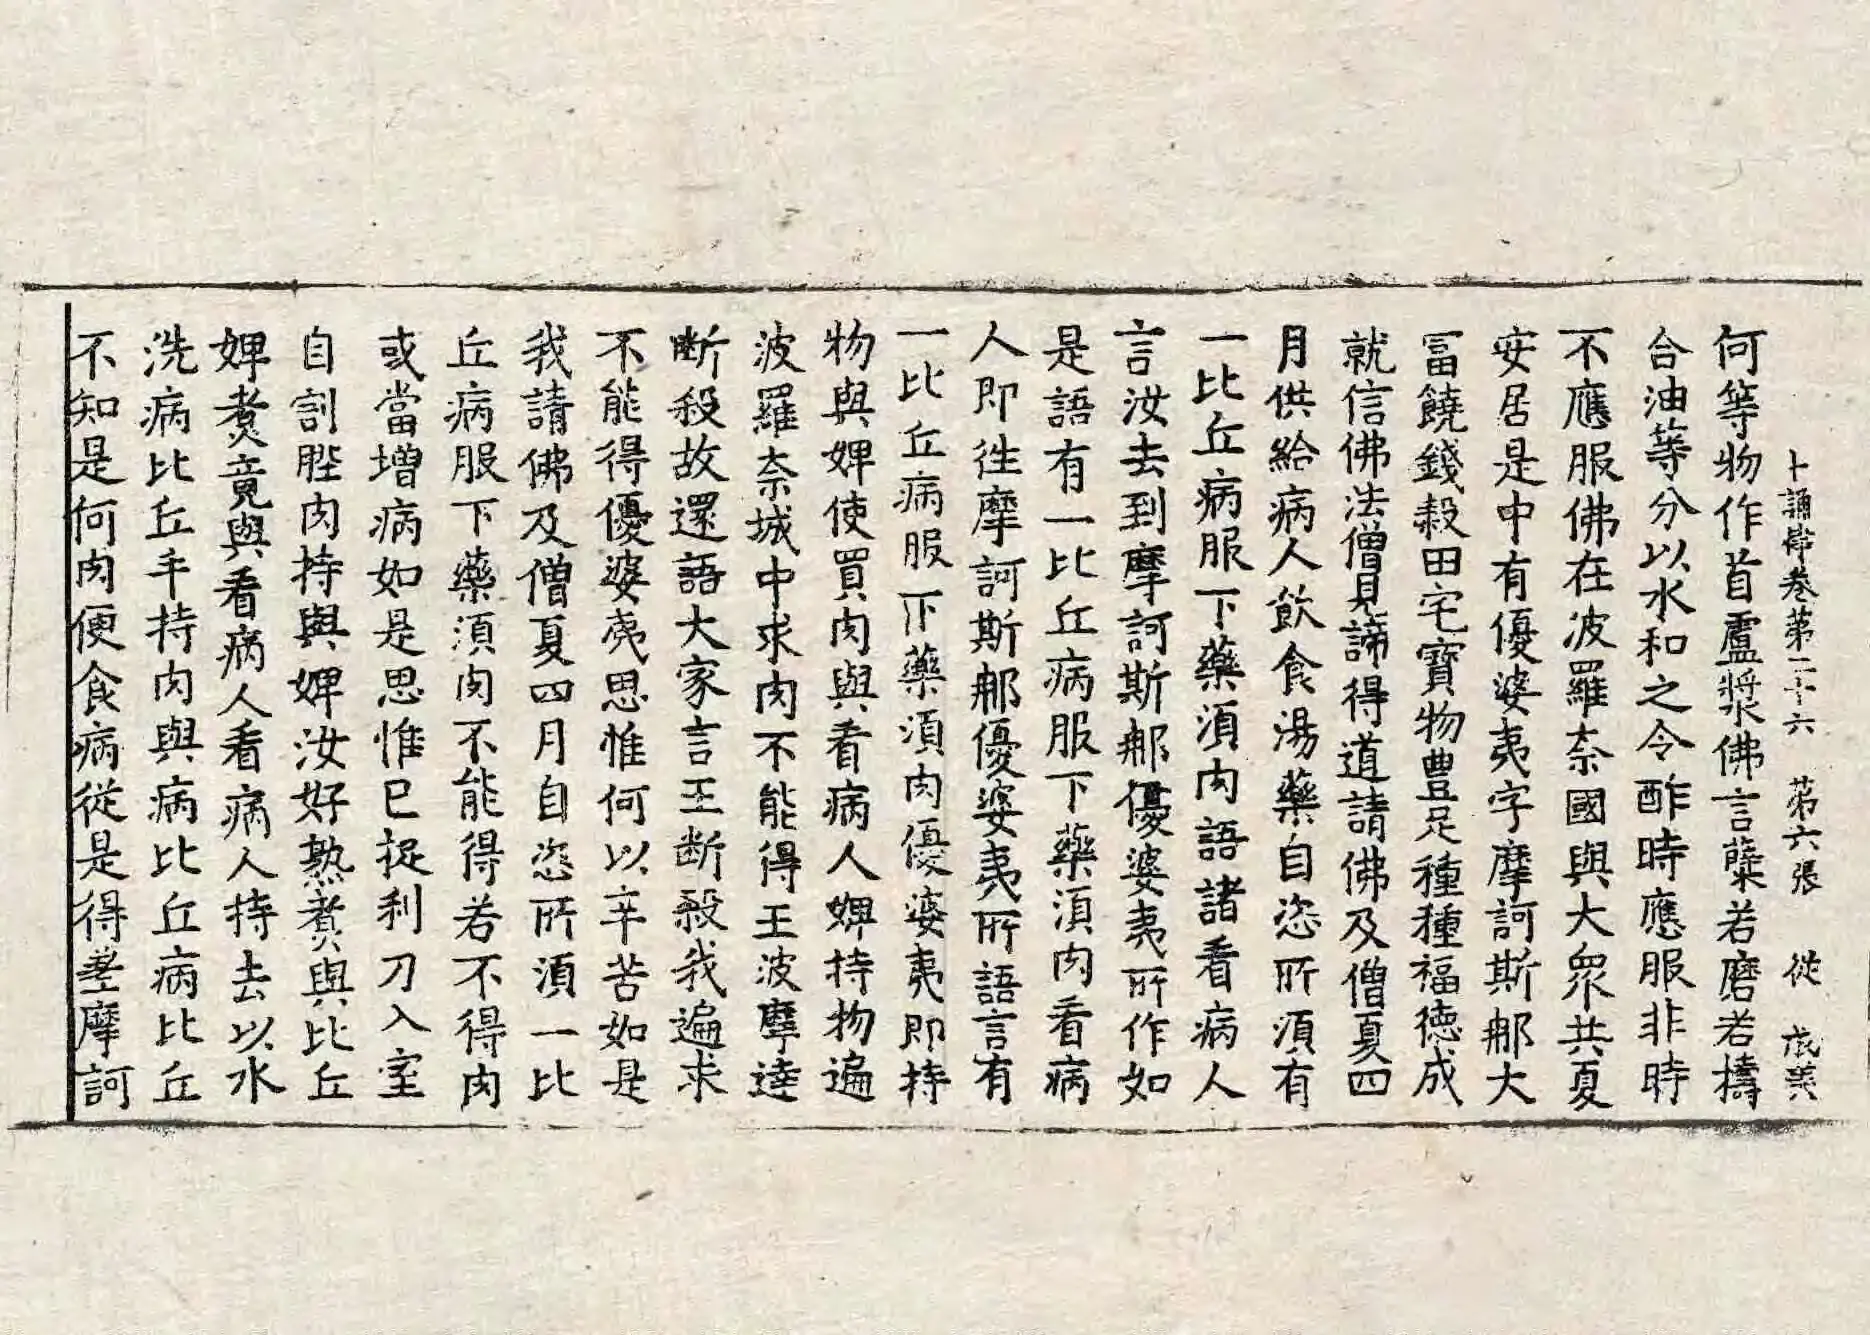 十誦律卷第二十六 第六張 從
何等物作首盧漿佛言䴷若磨若擣
合油等分以水和之令酢時應服非時
不應服佛在波羅奈國與大衆共夏
安居是中有優婆夷字摩訶斯那大
冨饒錢穀田宅寶物豊足種種福德成
就信佛法僧見諦得道請佛及僧夏四
月供給病人飲食湯藥自恣所湏有
一比丘病服下藥湏肉語諸看病人
言汝去到摩訶斯那優婆夷所作如
是語有一比丘病服下藥湏肉看病
人即徃摩訶斯那優婆夷所語言有
一比丘病服下藥湏肉優婆夷即持
物與婢使買肉與看病人婢持物遍
波羅奈城中求肉不能得王波摩達
断殺故還語大家言王断殺我遍求
不能得優婆夷思惟何以辛苦如是
我請佛及僧夏四月自恣所湏一比
丘病服下藥湏肉不能得若不得肉
或當增病如是思惟已捉利刀入室
自割䏶肉持與婢汝好熟煑與比丘
婢煑竟與看病人看病人持去以水
洗病比丘手持肉與病比丘病比丘
不知是何肉便食病從是得差摩訶